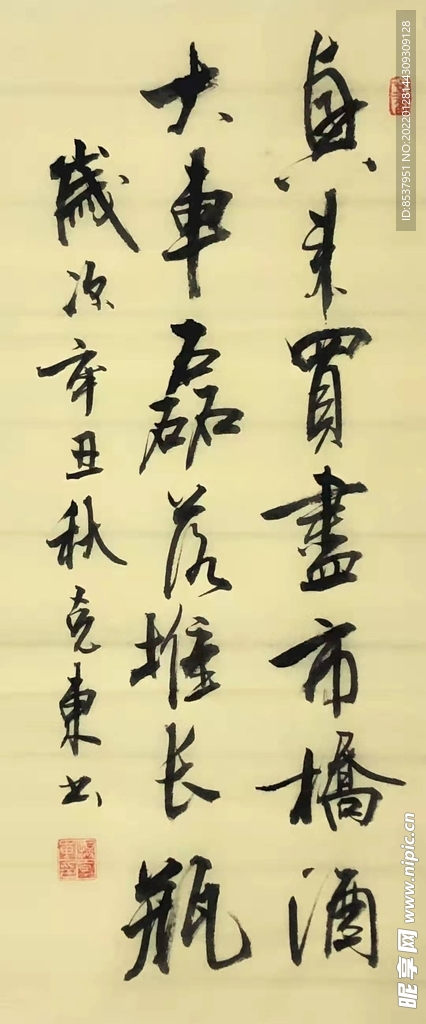 興来買盡市橋酒
大車磊落堆长瓶
歲次辛丑秋克東书
ID:8537951 NO:20220128144309309128
昵享网 www.nipic.cn